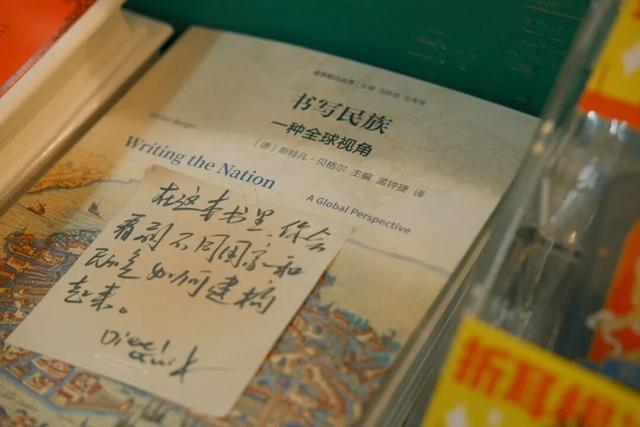 书写民族
一种全球视角
[德] 斯特凡·贝格尔 主编 孟钟捷 译
Stefan Berger
Writing the Nation
A Global Perspective
在这本书里,你会
看到不同国家和
民族如何建构
起来。
折耳根